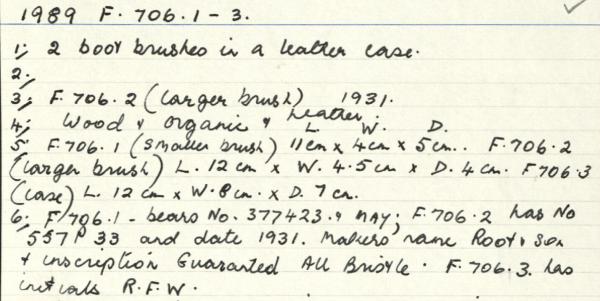 1989 F. 706.1 - 3.
1; 2 boot brushes in a leather case.
2;
3; F. 706.2 (larger brush) 1931.
4; Wood & organic & leather.
5; F. 706.1 (smaller brush) L. 11cm x W. 4cm x D. 5cm.. F. 706.2
(larger brush) L. 12cm x W. 4.5cm x D. 4cm. F706.3
(case) L. 12cm x W. 8cm. x D. 7cm.
6; F/706.1 - bears No. 377423. & May; F. 706.2 has No
557 P 33 and date 1931. Makers' name Root & Son
& inscription Guaranted All Bristle. F. 706.3. has
initials R.F.W.